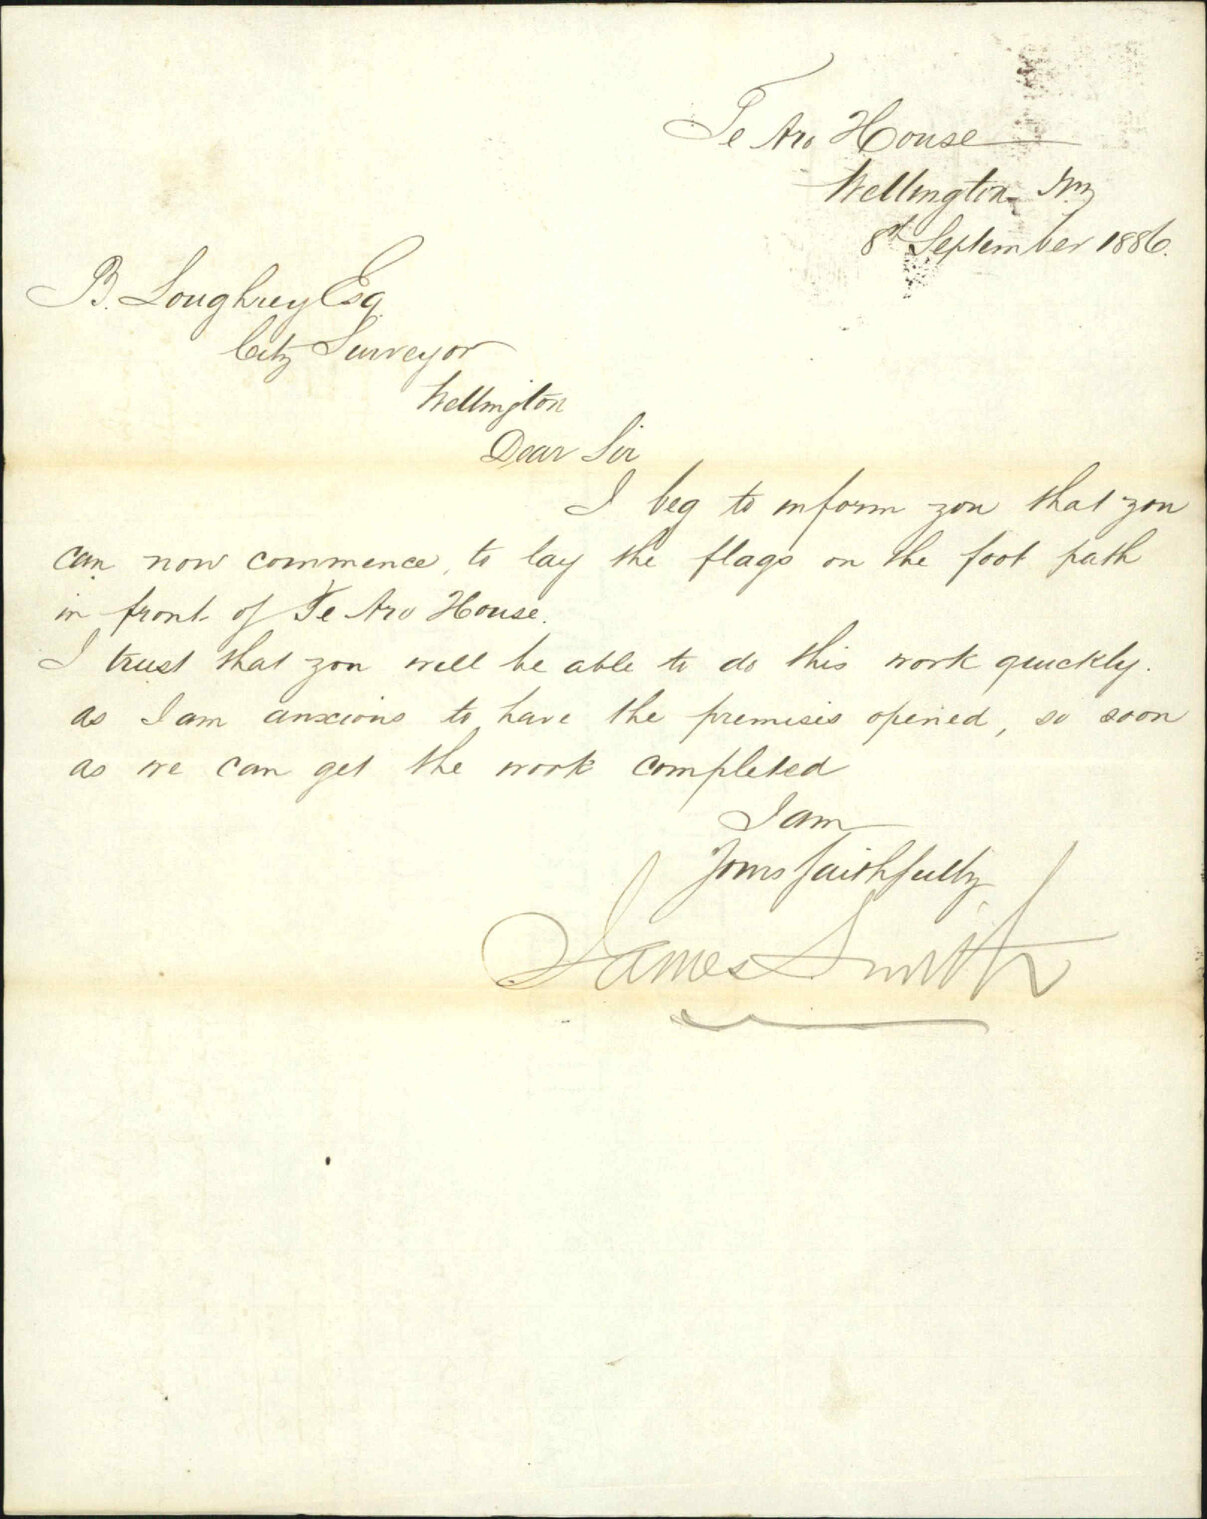 Te Aro House
Wellington NZ
8th September 1886.
B. Loughrey Esq.
City Surveyor
Wellington
Dear Sir
I beg to inform you that you
can now commence, to lay the flags on the foot path
in front of Te Aro House.
I trust that you will be able to do this work quickly.
as I am anxious to have the premises opened, so soon
as we can get the work completed
I am
Yours faithfully
James Smith